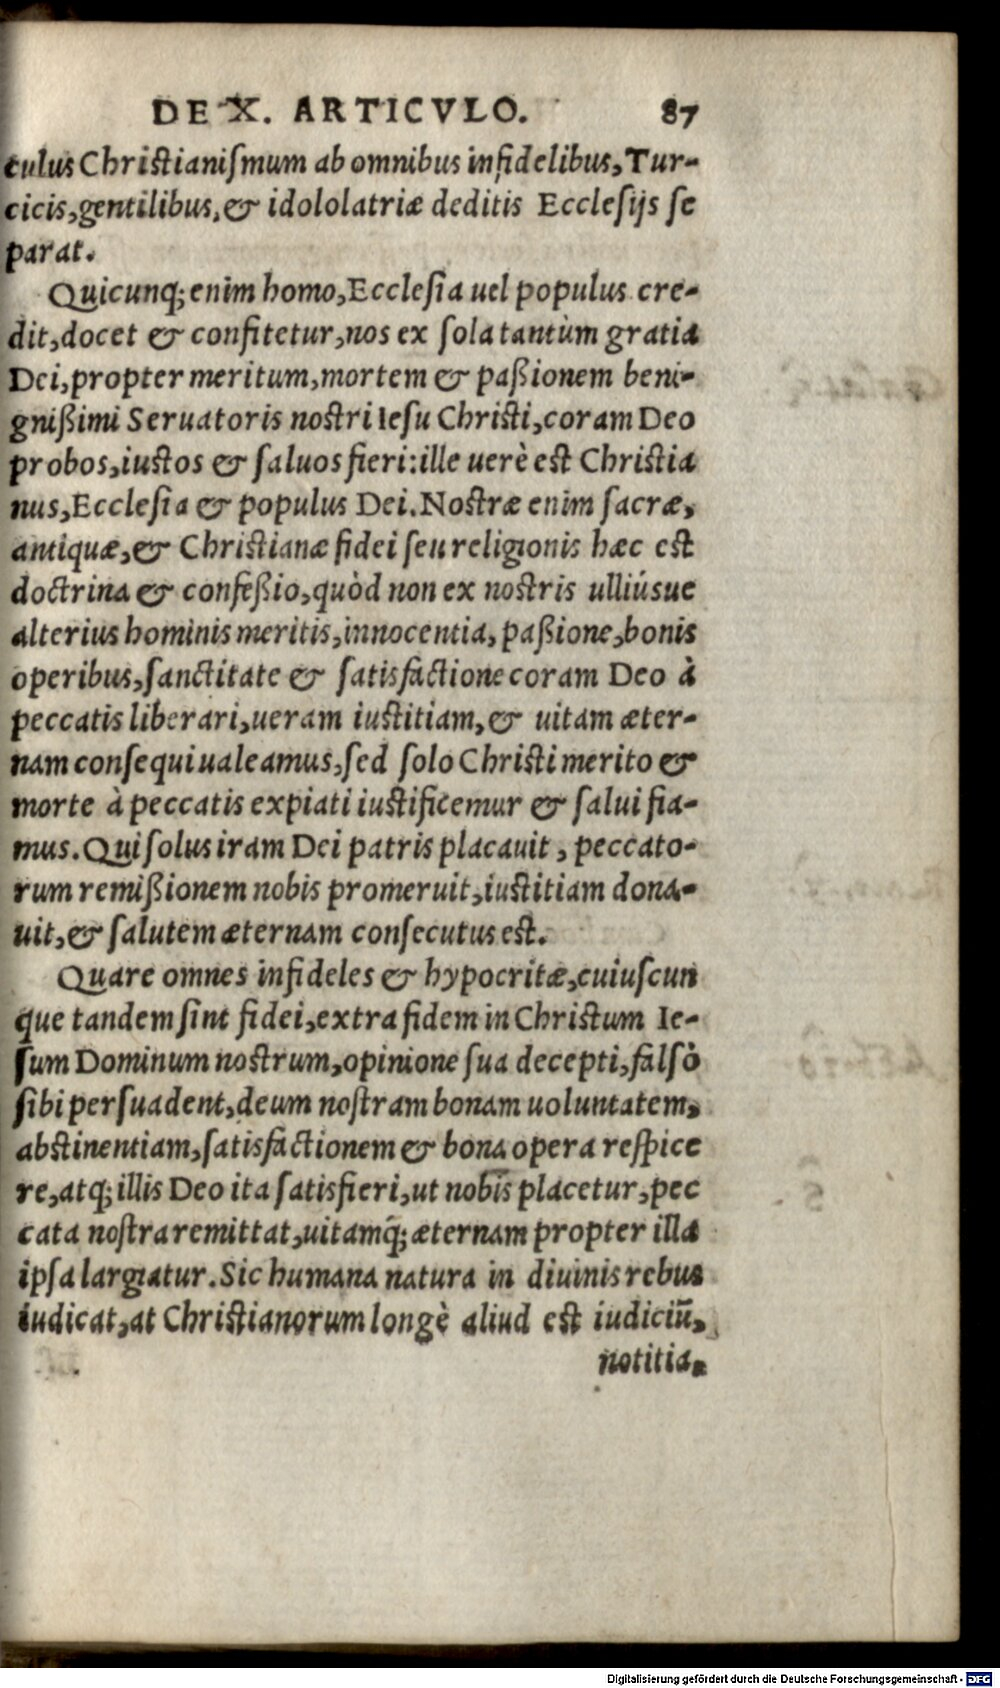 DE X. ARTICVLO. 87
culus Christianiſmum ab omnibus infidelibus, Tur-
cicis, gentilibus, & idololatriæ deditis Ecclesijs ſe
parat.
Quicunq; enim homo, Ecclesia uel populus cre-
dit, docet & confitetur, nos ex ſola tantùm gratia
Dei, propter meritum, mortem & paßionem beni-
gnißimi Seruatoris nostri Ieſu Christi, coram Deo
probos, iustos & ſaluos fieri: ille uerè est Christia
nus, Ecclesia & populus Dei. Nostræ enim ſacræ,
antiquæ, & Christianæ fidei ſeu religionis hæc est
doctrina & confeßio, quòd non ex nostris ulliúsue
alterius hominis meritis, innocentia, paßione, bonis
operibus, ſanctitate & ſatisfactione coram Deo à
peccatis liberari, ueram iustitiam, & uitam æter-
nam conſequi ualeamus, ſed ſolo Christi merito &
morte à peccatis expiati iustificemur & ſalui fia-
mus. Qui ſolus iram Dei patris placauit, peccato-
rum remißionem nobis promeruit, iustitiam dona-
uit, & ſalutem æternam conſecutus est.
Quare omnes infideles & hypocritæ, cuiuſcun
que tandem ſint fidei, extra fidem in Christum Ie-
ſum Dominum nostrum, opinione ſua decepti, falſò
ſibi perſuadent, deum noſtram bonam uoluntatem,
abstinentiam, ſatisfactionem & bona opera reſpice
re, atq; illis Deo ita ſatisfieri, ut nobis placetur, pec
cata noſtra remittat, uitamq́; æternam propter illa
ipſa largiatur. Sic humana natura in diuinis rebus
iudicat, at Christianorum longè aliud est iudiciū,
notitia.
Digitalisierung gefördert durch die Deutsche Forschungsgemeinschaft - DFG